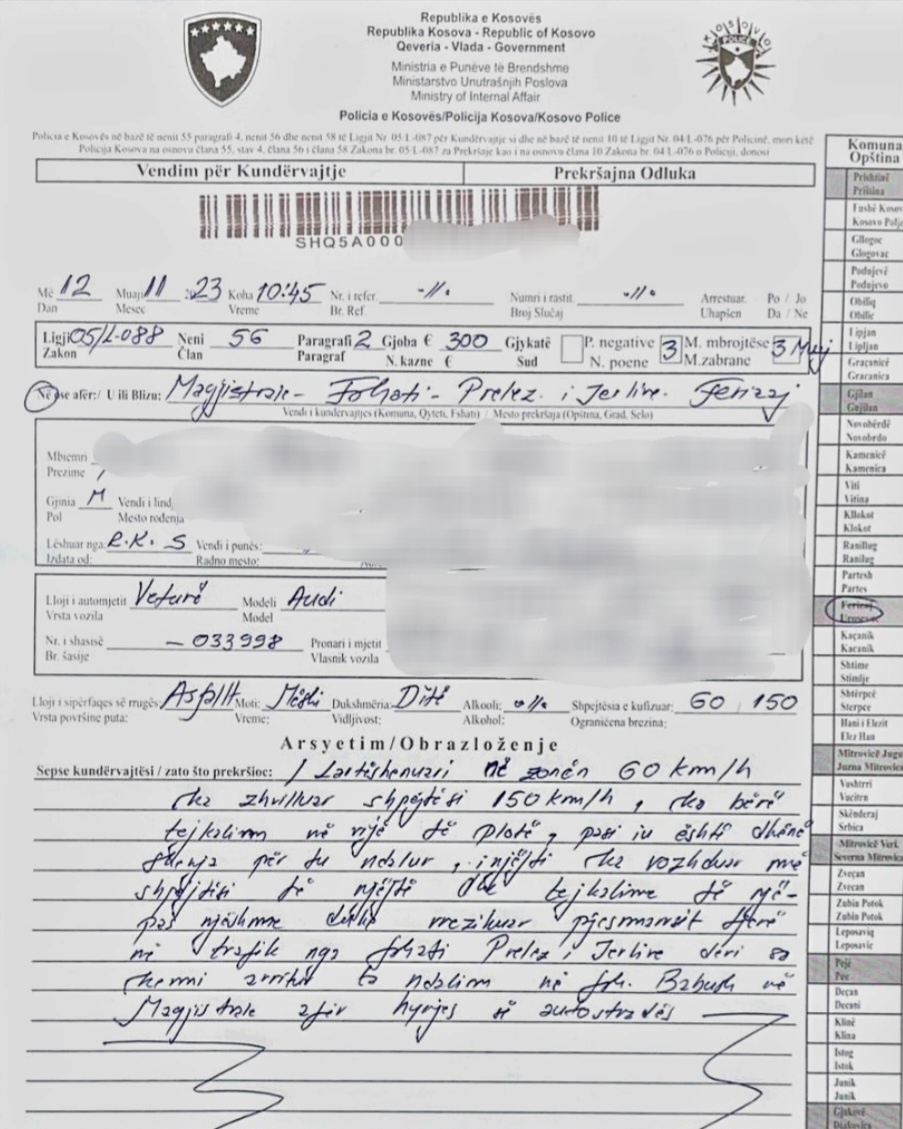 Republika e Kosovës
Republika Kosova - Republic of Kosovo
Qeveria - Vlada - Government
Ministria e Punëve të Brendshme
Ministarstvo Unutrašnjih Poslova
Ministry of Internal Affair
Policia e Kosovës/Policija Kosova/Kosovo Police
KOSOVO POLICE
Policia e Kosovës në bazë të nenit 55 paragrafi 4, nenit 56 dhe nenit 58 të Ligjit Nr. 05/L-087 për Kundërvajtje si dhe në bazë të nenit 10 të Ligjit Nr. 04/L-076 për Policinë, mori këtë
Policija Kosova na osnovu člana 55, stav 4, člana 56 i člana 58 Zakona br. 05/L-087 za Prekršaje kao i na osnovu člana 10 Zakona br. 04/L-076 o Policiji, donosi
Vendim për Kundërvajtje Prekršajna Odluka
SHQ5A000
Më 12 Muaji 11 23 Koha 10:45 Nr. i refer. -//- Numri i rastit. -//- Arrestuar. Po / Jo
Dan Mesec Vreme Br. Ref. Broj Slučaj Uhapšen Da / Ne
Ligji 05/L-088 Neni 56 Paragrafi 2 Gjoba € 300 Gjykatë P. negative 3 M. mbrojtëse 3 Muj
Zakon Član Paragraf N. kazne € Sud N. poene M.zabrane
Në ose afër:/ U ili Blizu: Magjistrale- Fshati- Prelez i Jerlive- Ferizaj
Vendi i kundërvajtjes (Komuna, Qyteti, Fshati) / Mesto prekršaja (Opština, Grad, Selo)
Mbiemri
Prezime
Gjinia M Vendi i lind
Pol Mesto rođenja
Lëshuar nga: R.K.S Vendi i punës:
Izdata od: Radno mesto:
Lloji i automjetit Veturë Modeli Audi
Vrsta vozila Model
Nr. i shasisë - 033998 Pronari i mjetit
Br. šasije Vlasnik vozila
Lloji i sipërfaqes së rrugës Asfallt Moti: Dukshmëria: Ditë Alkooli: -//- Shpejtësia e kufizuar: 60 / 150
Vrsta površine puta: Vreme: Vidljivost: Alkohol: Ograničena brezina:
Arsyetim/Obrazloženje
Sepse kundërvajtësi / zato što prekršioc: I Lartëshenuari në zonën 60 km/h
ka zhvilluar shpejtësi 150 km/h, ka bërë
tejkalim në vijë të plotë, pasi iu është dhënë
shenja për tu ndalur, i njëjti ka vozhduar me
shpejtësi të njëjtë dhe tejkalime të një-
pas njëshme duke rrezikuar pjesmarrësit tjerë
në trafik nga fshati Prelez i Jerlive deri sa
kemi arritur ta ndalim në fsh. Babush në
Magjistrale afër hyrjes së autostradës
Komuna
Opština
Prishtinë
Priština
Fushë Kosov
Kosovo Polje
Gllogoc
Glogovac
Podujevë
Podujevo
Obiliq
Obilic
Lipjan
Lipljan
Graçanicë
Gracanica
Gjilan
Gnjilan
Novobërdë
Novobrdo
Kamenicë
Kamenica
Viti
Vitina
Kllokot
Klokot
Ranillug
Ranilug
Partesh
Partes
Ferizaj
Urosevac
Kaçanik
Kacanik
Shtime
Stimlje
Shtërpcë
Sterpce
Hani i Elezit
Elez Han
Mitrovicë Jugo
Juzna Mitrovica
Vushtrri
Vucitrn
Skënderaj
Srbica
Mitrovicë Veri.
Severna Mitrovica
Zveçan
Zvecan
Zubin Potok
Zubin Potok
Leposaviq
Leposavic
Pejë
Pec
Deçan
Decani
Klinë
Klina
Istog
Istok
Junik
Junik
Gjakovë
Djakovica